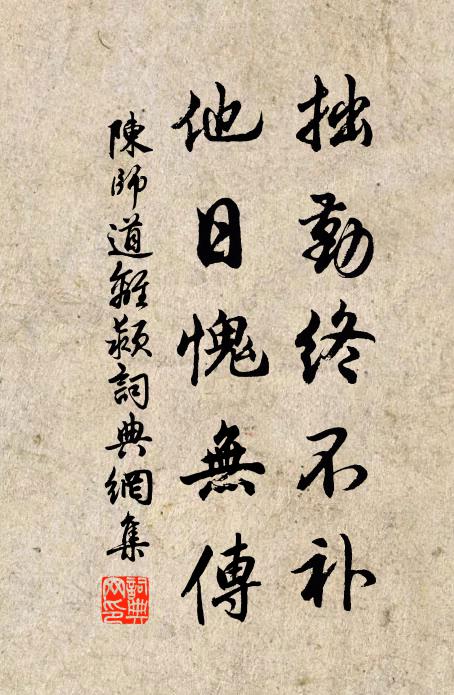 拙勤終不补
他日愧無傳
陳師道離潁詞典網集
詞典網印